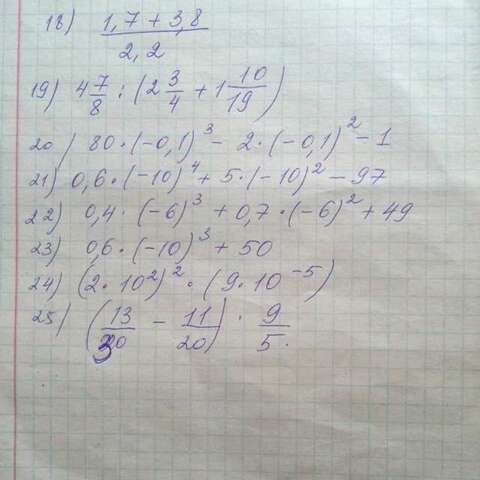 18) (1,7 + 3,8) / 2,2
19) 4 7/8 : (2 3/4 + 1 10/19)
20) 80 · (-0,1)³ - 2 · (-0,1)² - 1
21) 0,6 · (-10)⁴ + 5 · (-10)² - 97
22) 0,4 · (-6)³ + 0,7 · (-6)² + 49
23) 0,6 · (-10)³ + 50
24) (2 · 10²)² · (9 · 10⁻⁵)
25) (13/30 - 11/20) · 9/5.